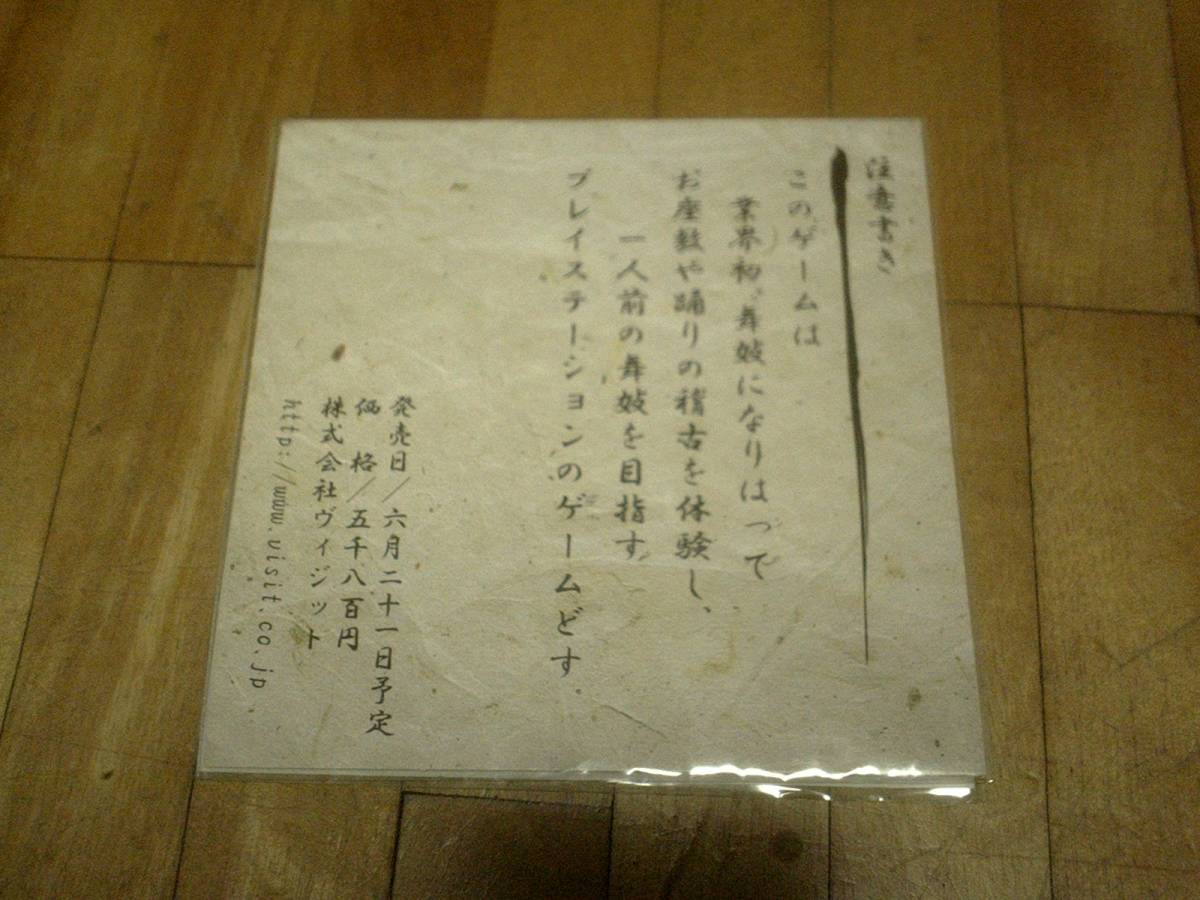 注意書き
このゲームは
業界初、舞妓になりはって
お座敷や踊りの稽古を体験し、
一人前の舞妓を目指す
プレイステーションのゲームどす。
発売日／六月二十一日予定
価　格／五千八百円
株式会社ヴィジット
http://www.visit.co.jp